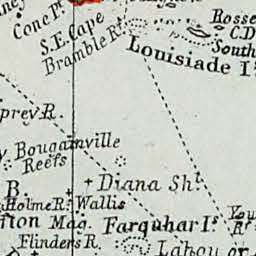 Conc. Pt.
S.E. Cape
Bramble Rf.
Rosse
C.D
South
Louisiade Is.
prey R.
Bougainville
Reefs
B.
Diana Sht.
Holme R. Wallis
ton Mag. Farquhar Is.
You
Rf
Flinders R.
Lahou or